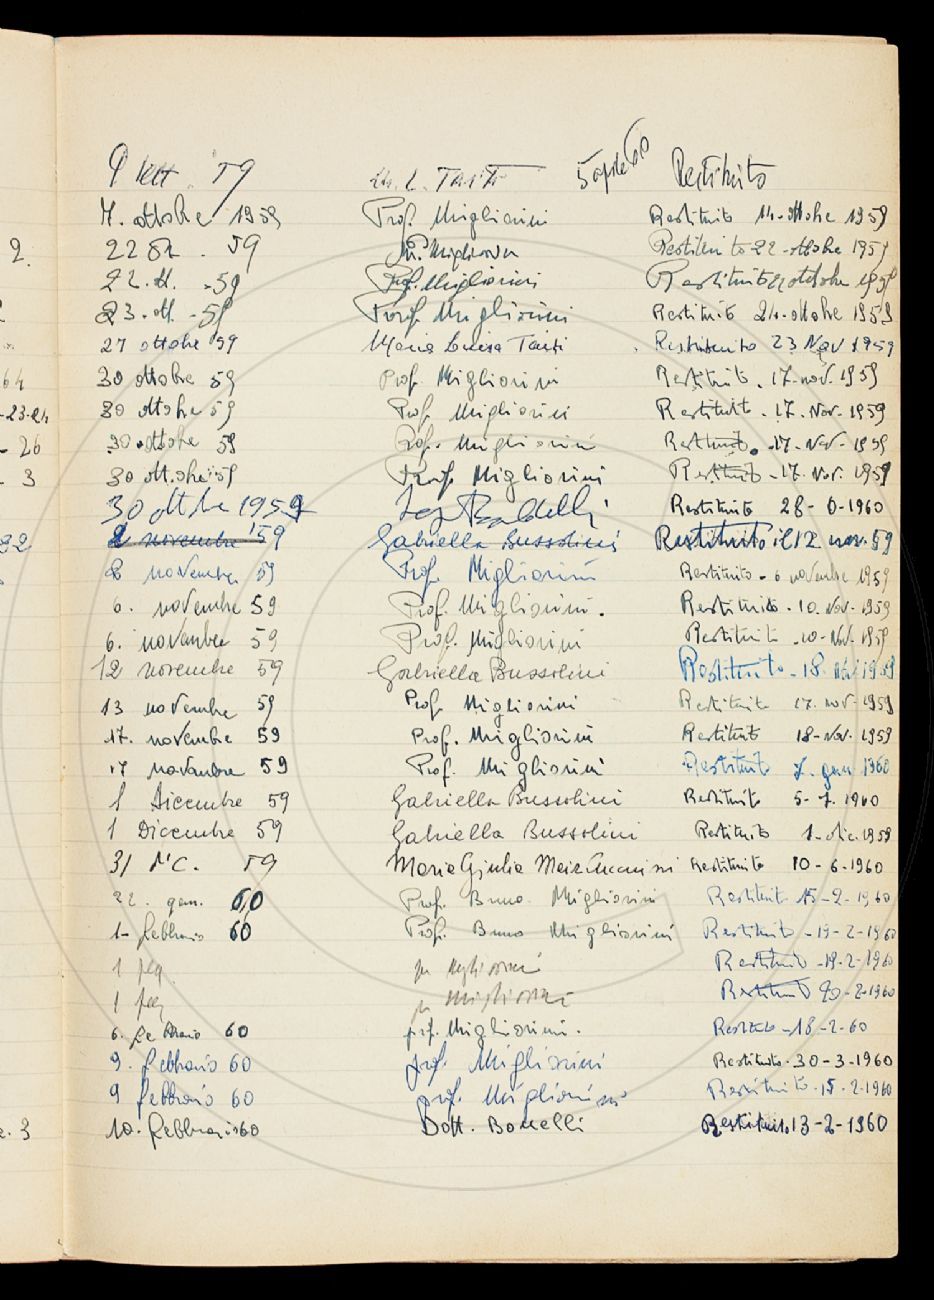 9 sett. 59 M. L. Tanti 5 aprile 60 Restituito
7. ottobre 1959 Prof. Migliorini Restituito 14-ottobre 1959
2. 22 59 Migliorini Restituito 22-ottobre 1959
22. ott. -59 Prof. Migliorini Restituito ottobre 1959
23. ott. -59 Prof. Migliorini Restituito 24-ottobre 1959
27 ottobre 59 Maria Luisa Tanti Restituito 23 Nov 1959
64 30 ottobre 59 Prof. Migliorini Restituito. 17-nov. 1959
-23-24 30 ottobre 59 Prof. Migliorini Restituito. 17. Nov. 1959
- 26 30 ottobre 59 Prof. Migliorini Restituito. 17- Nov- 1959
- 3 30 ottobre 59 Prof. Migliorini Restituito - 17. Nov. 1959
30 ottobre 1959 Baldelli Restituito 28- -1960
2 novembre '59 Gabriella Bussolini Restituito il 12 nov. 59
2 novembre 59 Prof. Migliorini Restituito - 6 novembre 1959
6. novembre 59 Prof. Migliorini. Restituito. 10. Nov. 1959
6. novembre 59 Prof. Migliorini Restituito -10- Nov. 1959
12 novembre 59 Gabriella Bussolini Restituito - 18. 1959
13 novembre 59 Prof. Migliorini Restituito 17. nov. 1959
17. novembre 59 Prof. Migliorini Restituito 18- Nov. 1959
17 novembre 59 Prof. Migliorini Restituito 7. gen 1960
1 Dicembre 59 Gabriella Bussolini Restituito 5-7. 1960
1 Dicembre 59 Gabriella Bussolini Restituito 1-dic. 1959
31 DIC. 59 Maria Giulia Restituito 10-6-1960
22. gen. 60 Prof. Bruno Migliorini Restituito 15-2-1960
1- febbraio 60 Prof. Bruno Migliorini Restituito -19-2-1960
1 Migliorini Restituito -19-2-1960
1 Migliorini Restituito -2-1960
6. febbraio 60 prof. Migliorini. Restituito -18-2-60
9. febbraio 60 prof. Migliorini Restituito. 30-3-1960
9 febbraio 60 prof. Migliorini Restituito -15-2-1960
3 10. febbraio 60 Dott. Restituito 13-2-1960